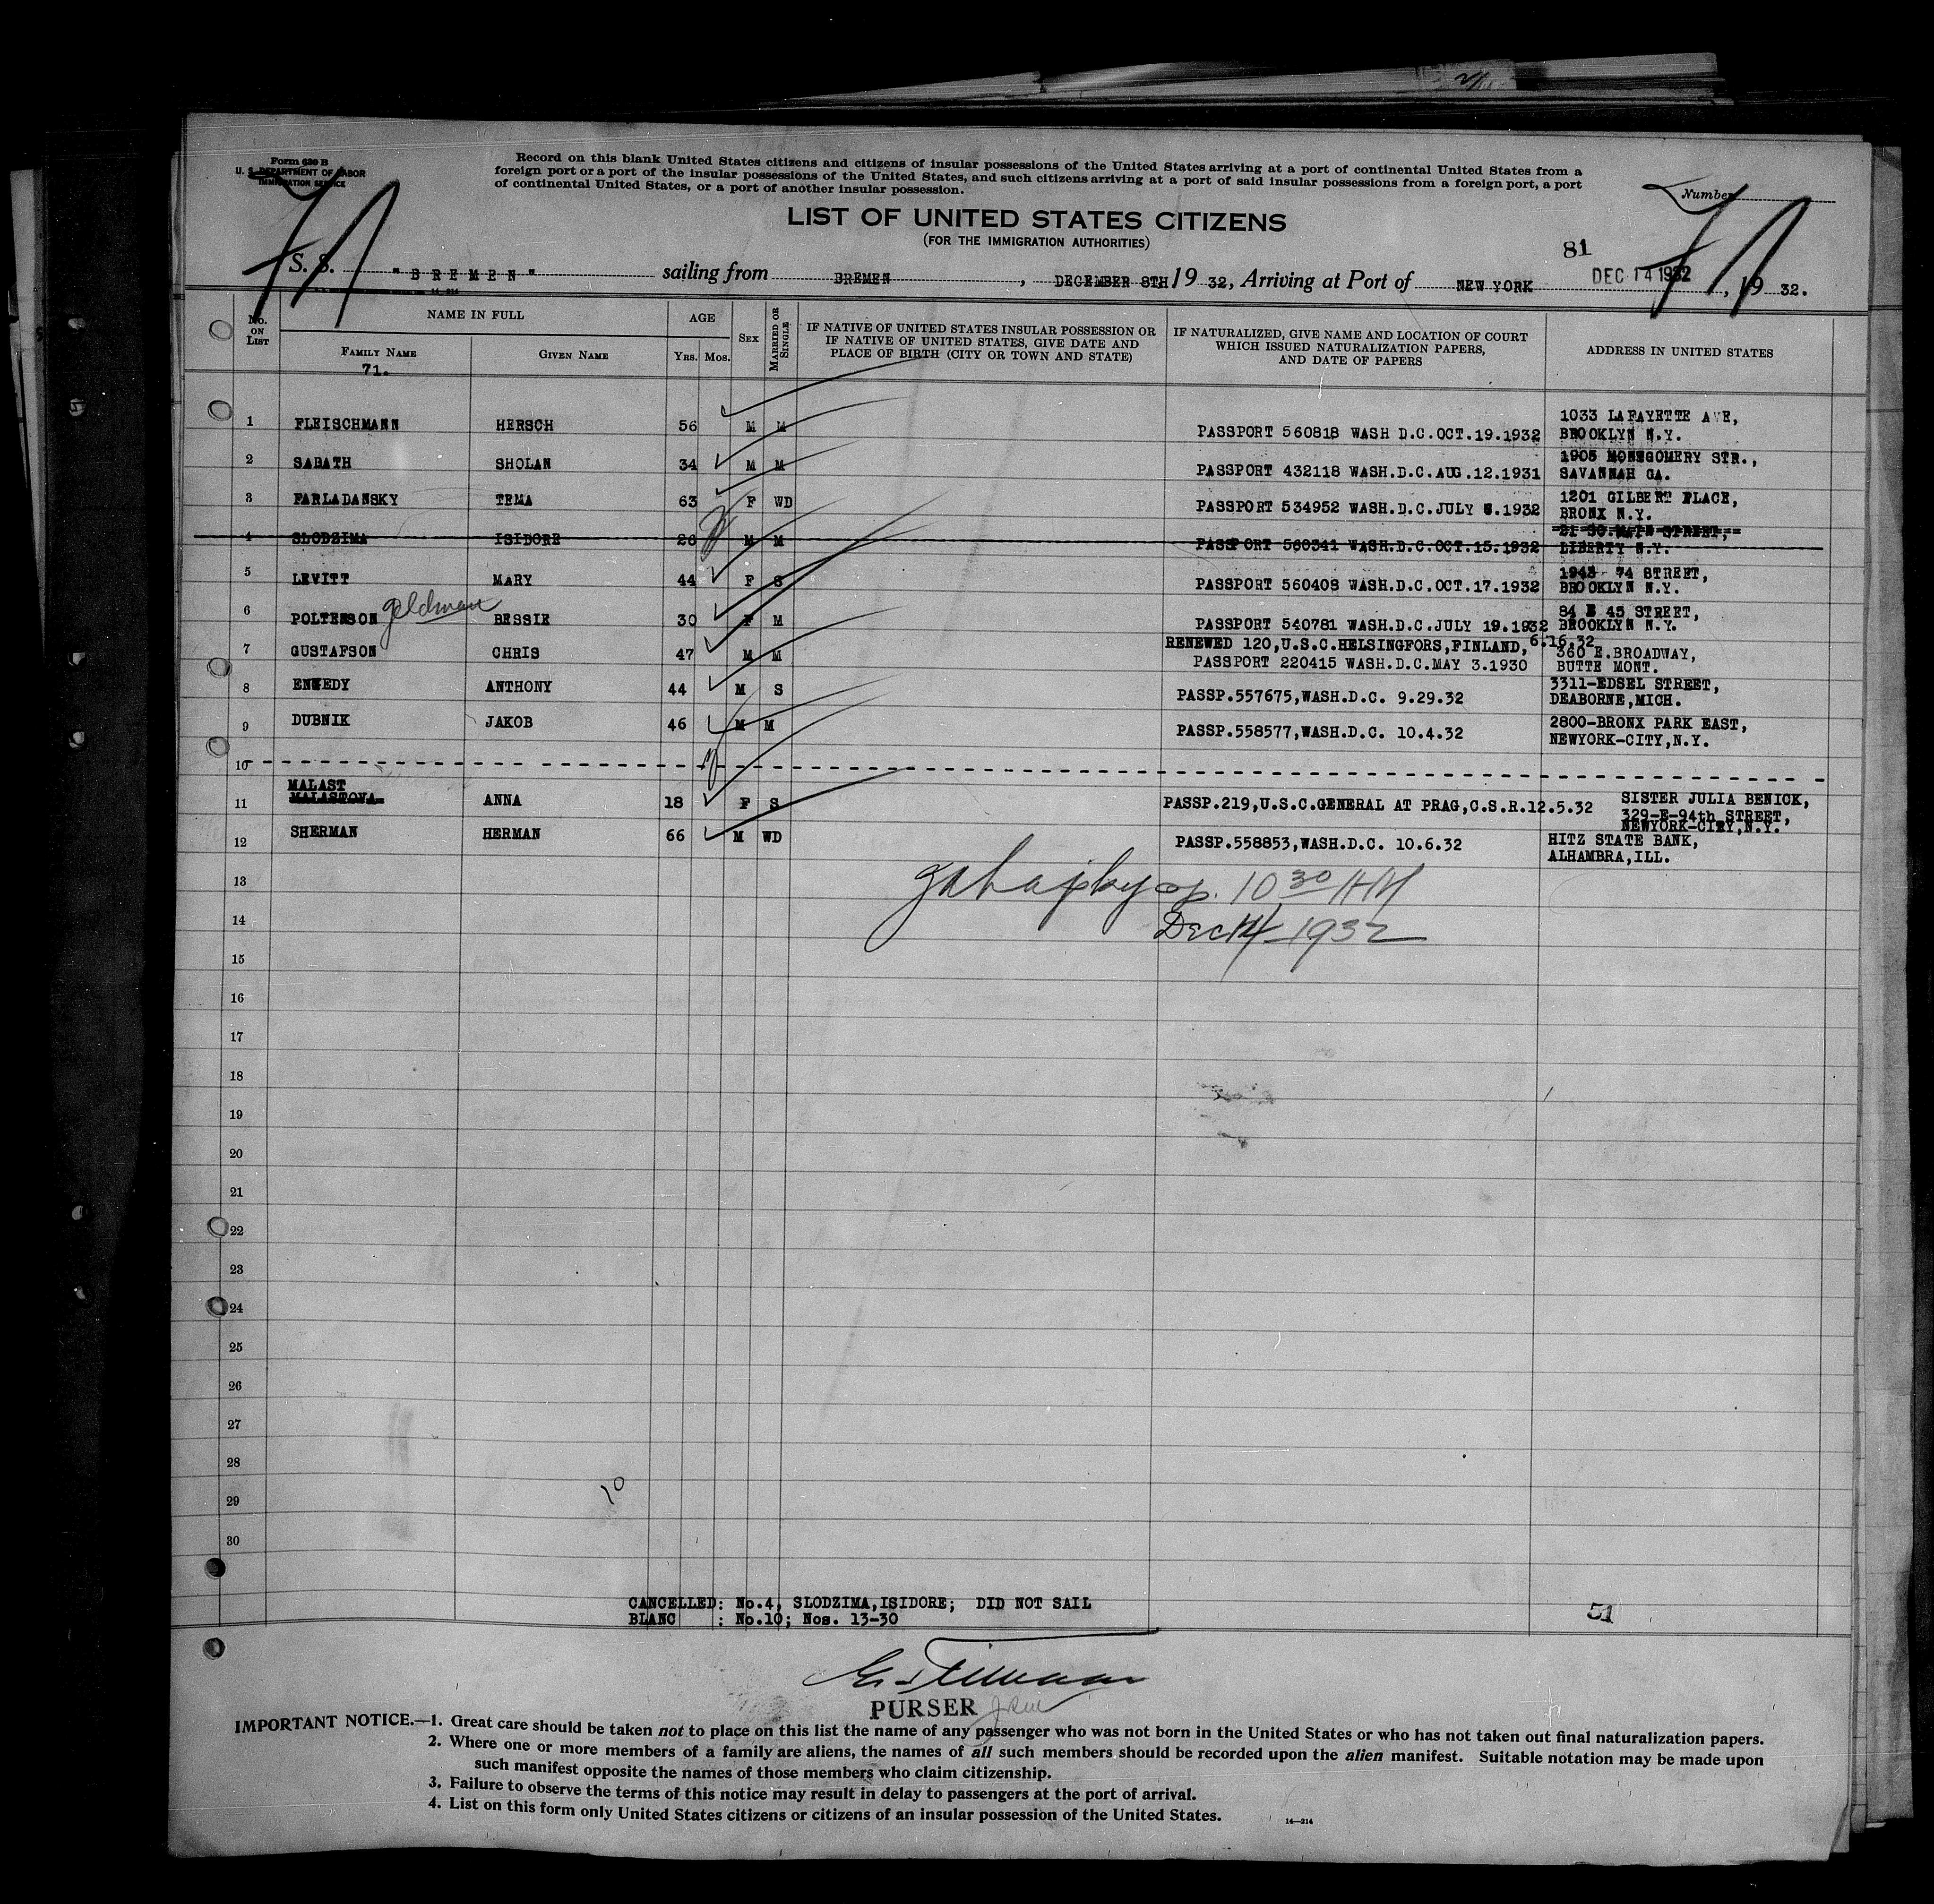 Form 630 B
U. S. DEPARTMENT OF LABOR
IMMIGRATION SERVICE
Record on this blank United States citizens and citizens of insular possessions of the United States arriving at a port of continental United States from a
foreign port or a port of the insular possessions of the United States, and such citizens arriving at a port of said insular possessions from a foreign port, a port
of continental United States, or a port of another insular possession.
Number
LIST OF UNITED STATES CITIZENS
(FOR THE IMMIGRATION AUTHORITIES)
81
S. S. "BREMEN" sailing from BREMEN, DECEMBER 8TH 19 32, Arriving at Port of NEW YORK DEC 14 1932, 19 32.
14-214
No. ON LIST
NAME IN FULL
FAMILY NAME
GIVEN NAME
AGE
YRS. MOS.
SEX
MARRIED OR SINGLE
IF NATIVE OF UNITED STATES INSULAR POSSESSION OR
IF NATIVE OF UNITED STATES, GIVE DATE AND
PLACE OF BIRTH (CITY OR TOWN AND STATE)
IF NATURALIZED, GIVE NAME AND LOCATION OF COURT
WHICH ISSUED NATURALIZATION PAPERS,
AND DATE OF PAPERS
ADDRESS IN UNITED STATES
71.
1 FLEISCHMANN HERSCH 56 M M PASSPORT 560818 WASH D.C.OCT.19.1932 1033 LAFAYETTE AVE,
BROOKLYN N.Y.
2 SABATH SHOLAN 34 M M PASSPORT 432118 WASH.D.C.AUG.12.1931 1905 MONTGOMERY STR.,
SAVANNAH GA.
3 FARLADANSKY TEMA 63 F WD PASSPORT 534952 WASH.D.C.JULY .1932 1201 GILBERT PLACE,
BRONX N.Y.
4 SLODZIMA ISIDORE 26 M M PASSPORT 560341 WASH.D.C.OCT.15.1932 21 SO.MAIN STREET,
LIBERTY N.Y.
5 LEVITT MARY 44 F S PASSPORT 560408 WASH.D.C.OCT.17.1932 1943 74 STREET,
BROOKLYN N.Y.
6 POLTERSON goldman BESSIE 30 F M PASSPORT 540781 WASH.D.C.JULY 19.1932 84 E 45 STREET,
BROOKLYN N.Y.
RENEWED 120,U.S.C.HELSINGFORS,FINLAND, 6.16.32
7 GUSTAFSON CHRIS 47 M M PASSPORT 220415 WASH.D.C.MAY 3.1930 360 E.BROADWAY,
BUTTE MONT.
8 ENGEDY ANTHONY 44 M S PASSP.557675,WASH.D.C. 9.29.32 3311-EDSEL STREET,
DEABORNE,MICH.
9 DUBNIK JAKOB 46 M M PASSP.558577,WASH.D.C. 10.4.32 2800-BRONX PARK EAST,
NEWYORK-CITY,N.Y.
10
MALAST
11 MALASTOVA ANNA 18 F S PASSP.219,U.S.C.GENERAL AT PRAG,C.S.R.12.5.32 SISTER JULIA BENICK,
329-E-94th STREET,
NEWYORK-CITY,N.Y.
12 SHERMAN HERMAN 66 M WD PASSP.558853,WASH.D.C. 10.6.32 HITZ STATE BANK,
ALHAMBRA,ILL.
13 10 30 AM
14 Dec 14 1932
15
16
17
18
19
20
21
22
23
24
25
26
27
28
10
29
30
CANCELLED: No.4, SLODZIMA,ISIDORE; DID NOT SAIL
BLANC : No.10; Nos. 13-30
51
PURSER
IMPORTANT NOTICE.—1. Great care should be taken not to place on this list the name of any passenger who was not born in the United States or who has not taken out final naturalization papers.
2. Where one or more members of a family are aliens, the names of all such members should be recorded upon the alien manifest. Suitable notation may be made upon
such manifest opposite the names of those members who claim citizenship.
3. Failure to observe the terms of this notice may result in delay to passengers at the port of arrival.
4. List on this form only United States citizens or citizens of an insular possession of the United States.
14—214